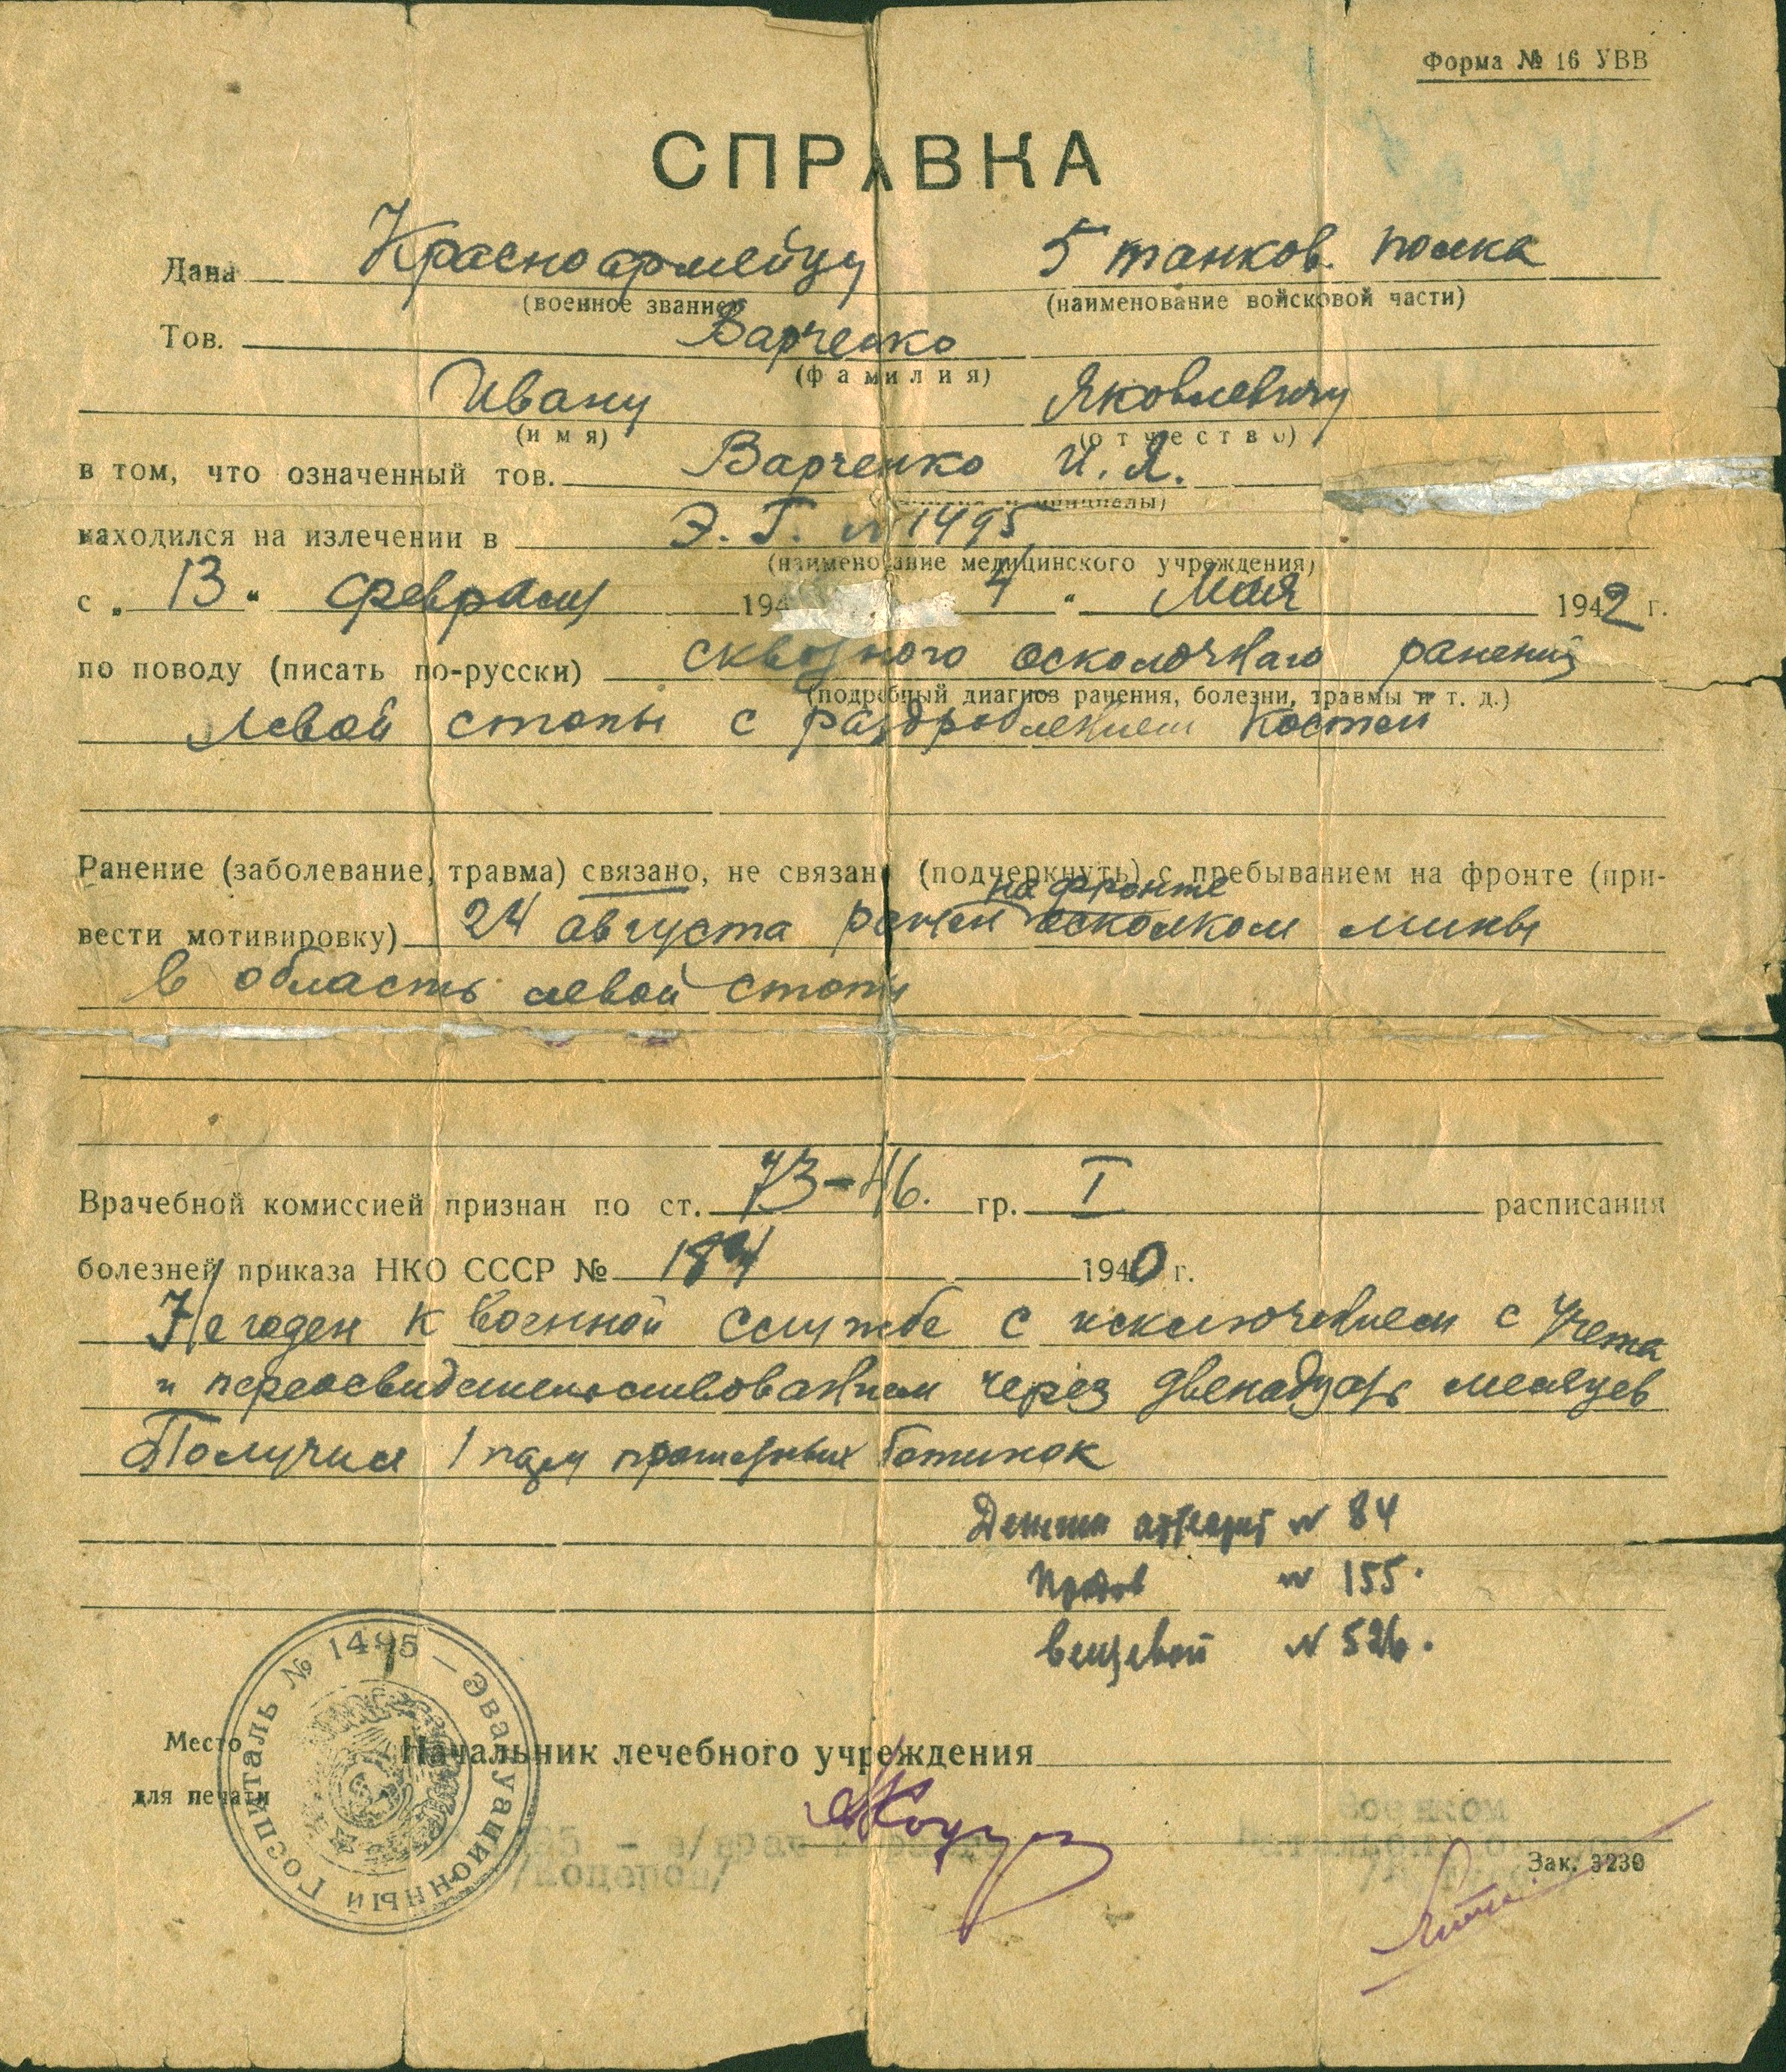 Форма № 16 УВВ
СПРАВКА
Дана Красноармейцу 5 танков. полка
(военное звание) (наименование войсковой части)
Тов. Варченко
(фамилия)
Ивану Яковлевичу
(имя) (отчество)
в том, что означенный тов. Варченко И. Я.
инициалы)
находился на излечении в Э. Г. № 1495
(наименование медицинского учреждения)
с „ 13 " февраля 194 4 " мая 1942 г.
по поводу (писать по-русски) сквозного осколочного ранения
(подробный диагноз ранения, болезни, травмы и т. д.)
левой стопы с раздроблением костей
Ранение (заболевание, травма) связано, не связано (подчеркнуть) с пребыванием на фронте (при-
на фронте
вести мотивировку) 24 августа ранен осколком мины
в область левой стопы
Врачебной комиссией признан по ст. 73-А б. гр. I расписания
болезней приказа НКО СССР № 184 1940 г.
Не годен к военной службе с исключением с учета
и переосвидетельствованием через двенадцать месяцев
Получил 1 пару ботинок
аттестат № 84
Продов № 155.
вещевой № 526.
Госпиталь № 1495 — Эвакуационный
Место
для печати
Начальник лечебного учреждения
Военком
врач
Зак. 3230